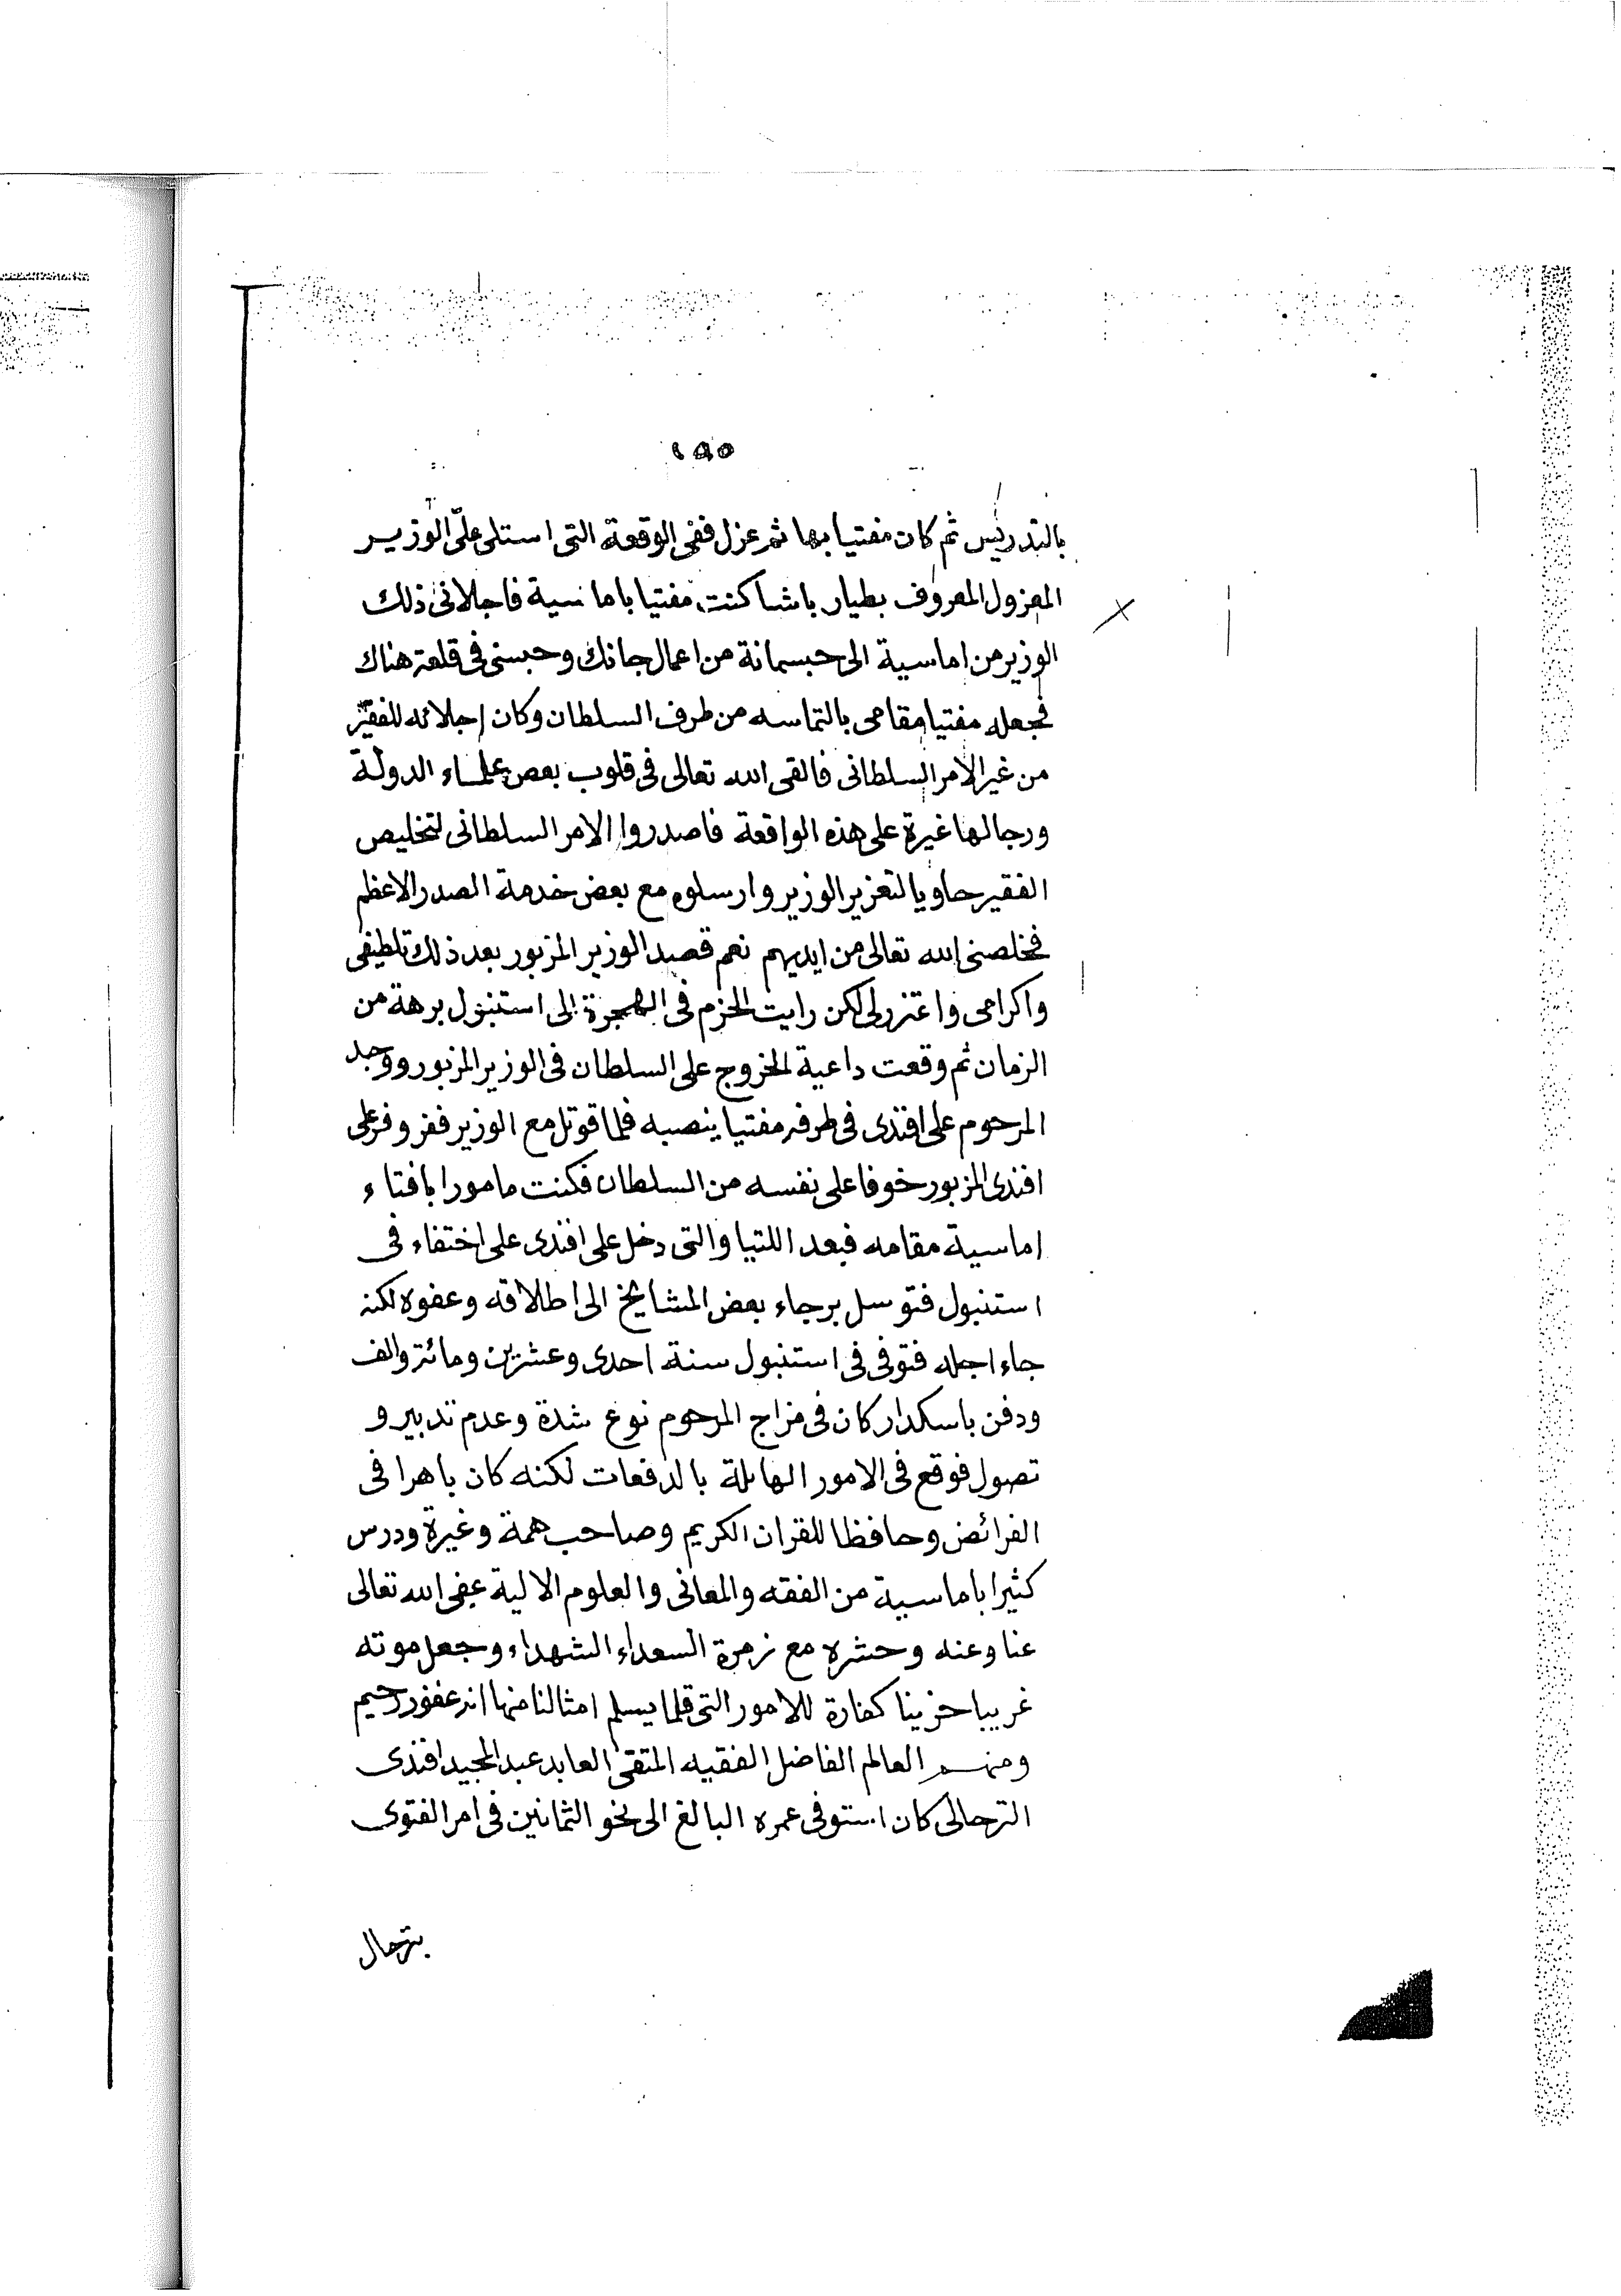 ١٥٥
بالتدريس ثم كان مفتيا بها ثم عزل ففى الوقعة التى استلى علىّ الوزير
المعزول المعروف بطيار باشا كنت مفتيا باماسية فاجلانى ذلك
الوزير من اماسية الى حبسمانة من اعمال جانك وحبسنى فى قلعة هناك
فجعله مفتيا مقامى بالتماسه من طرف السلطان وكان اجلائه للفقير
من غير الامر السلطانى فالقى الله تعالى فى قلوب بعض علماء الدولة
ورجالها غيرة على هذه الواقعة فاصدروا الامر السلطانى لتخليص
الفقير حاويا لتعزير الوزير وارسلوه مع بعض خدمة الصدر الاعظم
فخلصنى الله تعالى من ايديهم نعم قصد الوزير المزبور بعد ذلك تلطيفى
واكرامى واعتزر لى لكن رايت الحزم فى الهجرة الى استنبول برهة من
الزمان ثم وقعت داعية الخروج على السلطان فى الوزير المزبور ووجد
المرحوم على افندى فى طرفه مفتيا ينصبه فلما قوتل مع الوزير ففر وفر على
افندى المزبور خوفا على نفسه من السلطان فكنت مامورا بافتاء
اماسية مقامه فبعد اللتيا والتى دخل على افندى على اختفاء فى
استنبول فتوسل برجاء بعض المشايخ الى اطلاقه وعفوه لكنه
جاء اجله فتوفى فى استنبول سنة احدى وعشرين ومائتر والف
ودفن باسكدار كان فى مزاج المرحوم نوع شدة وعدم تدبير و
تصول فوقع فى الامور الهائلة بالدفعات لكنه كان باهرا فى
الفرائض وحافظا للقران الكريم وصاحب همة وغيرة ودرس
كثيرا باماسية من الفقه والمعانى والعلوم الالية عفى الله تعالى
عنا وعنه وحشره مع زمرة السعداء الشهداء وجعل موته
غريبا حزينا كفارة للامور التى قلما يسلم امثالنا منها انه غفور رحيم
ومنهم العالم الفاضل الفقيه المتقى العابد عبد المجيد افندى
الترحالى كان استوفى عمره البالغ الى نحو الثمانين فى امر الفتوى
بترحال